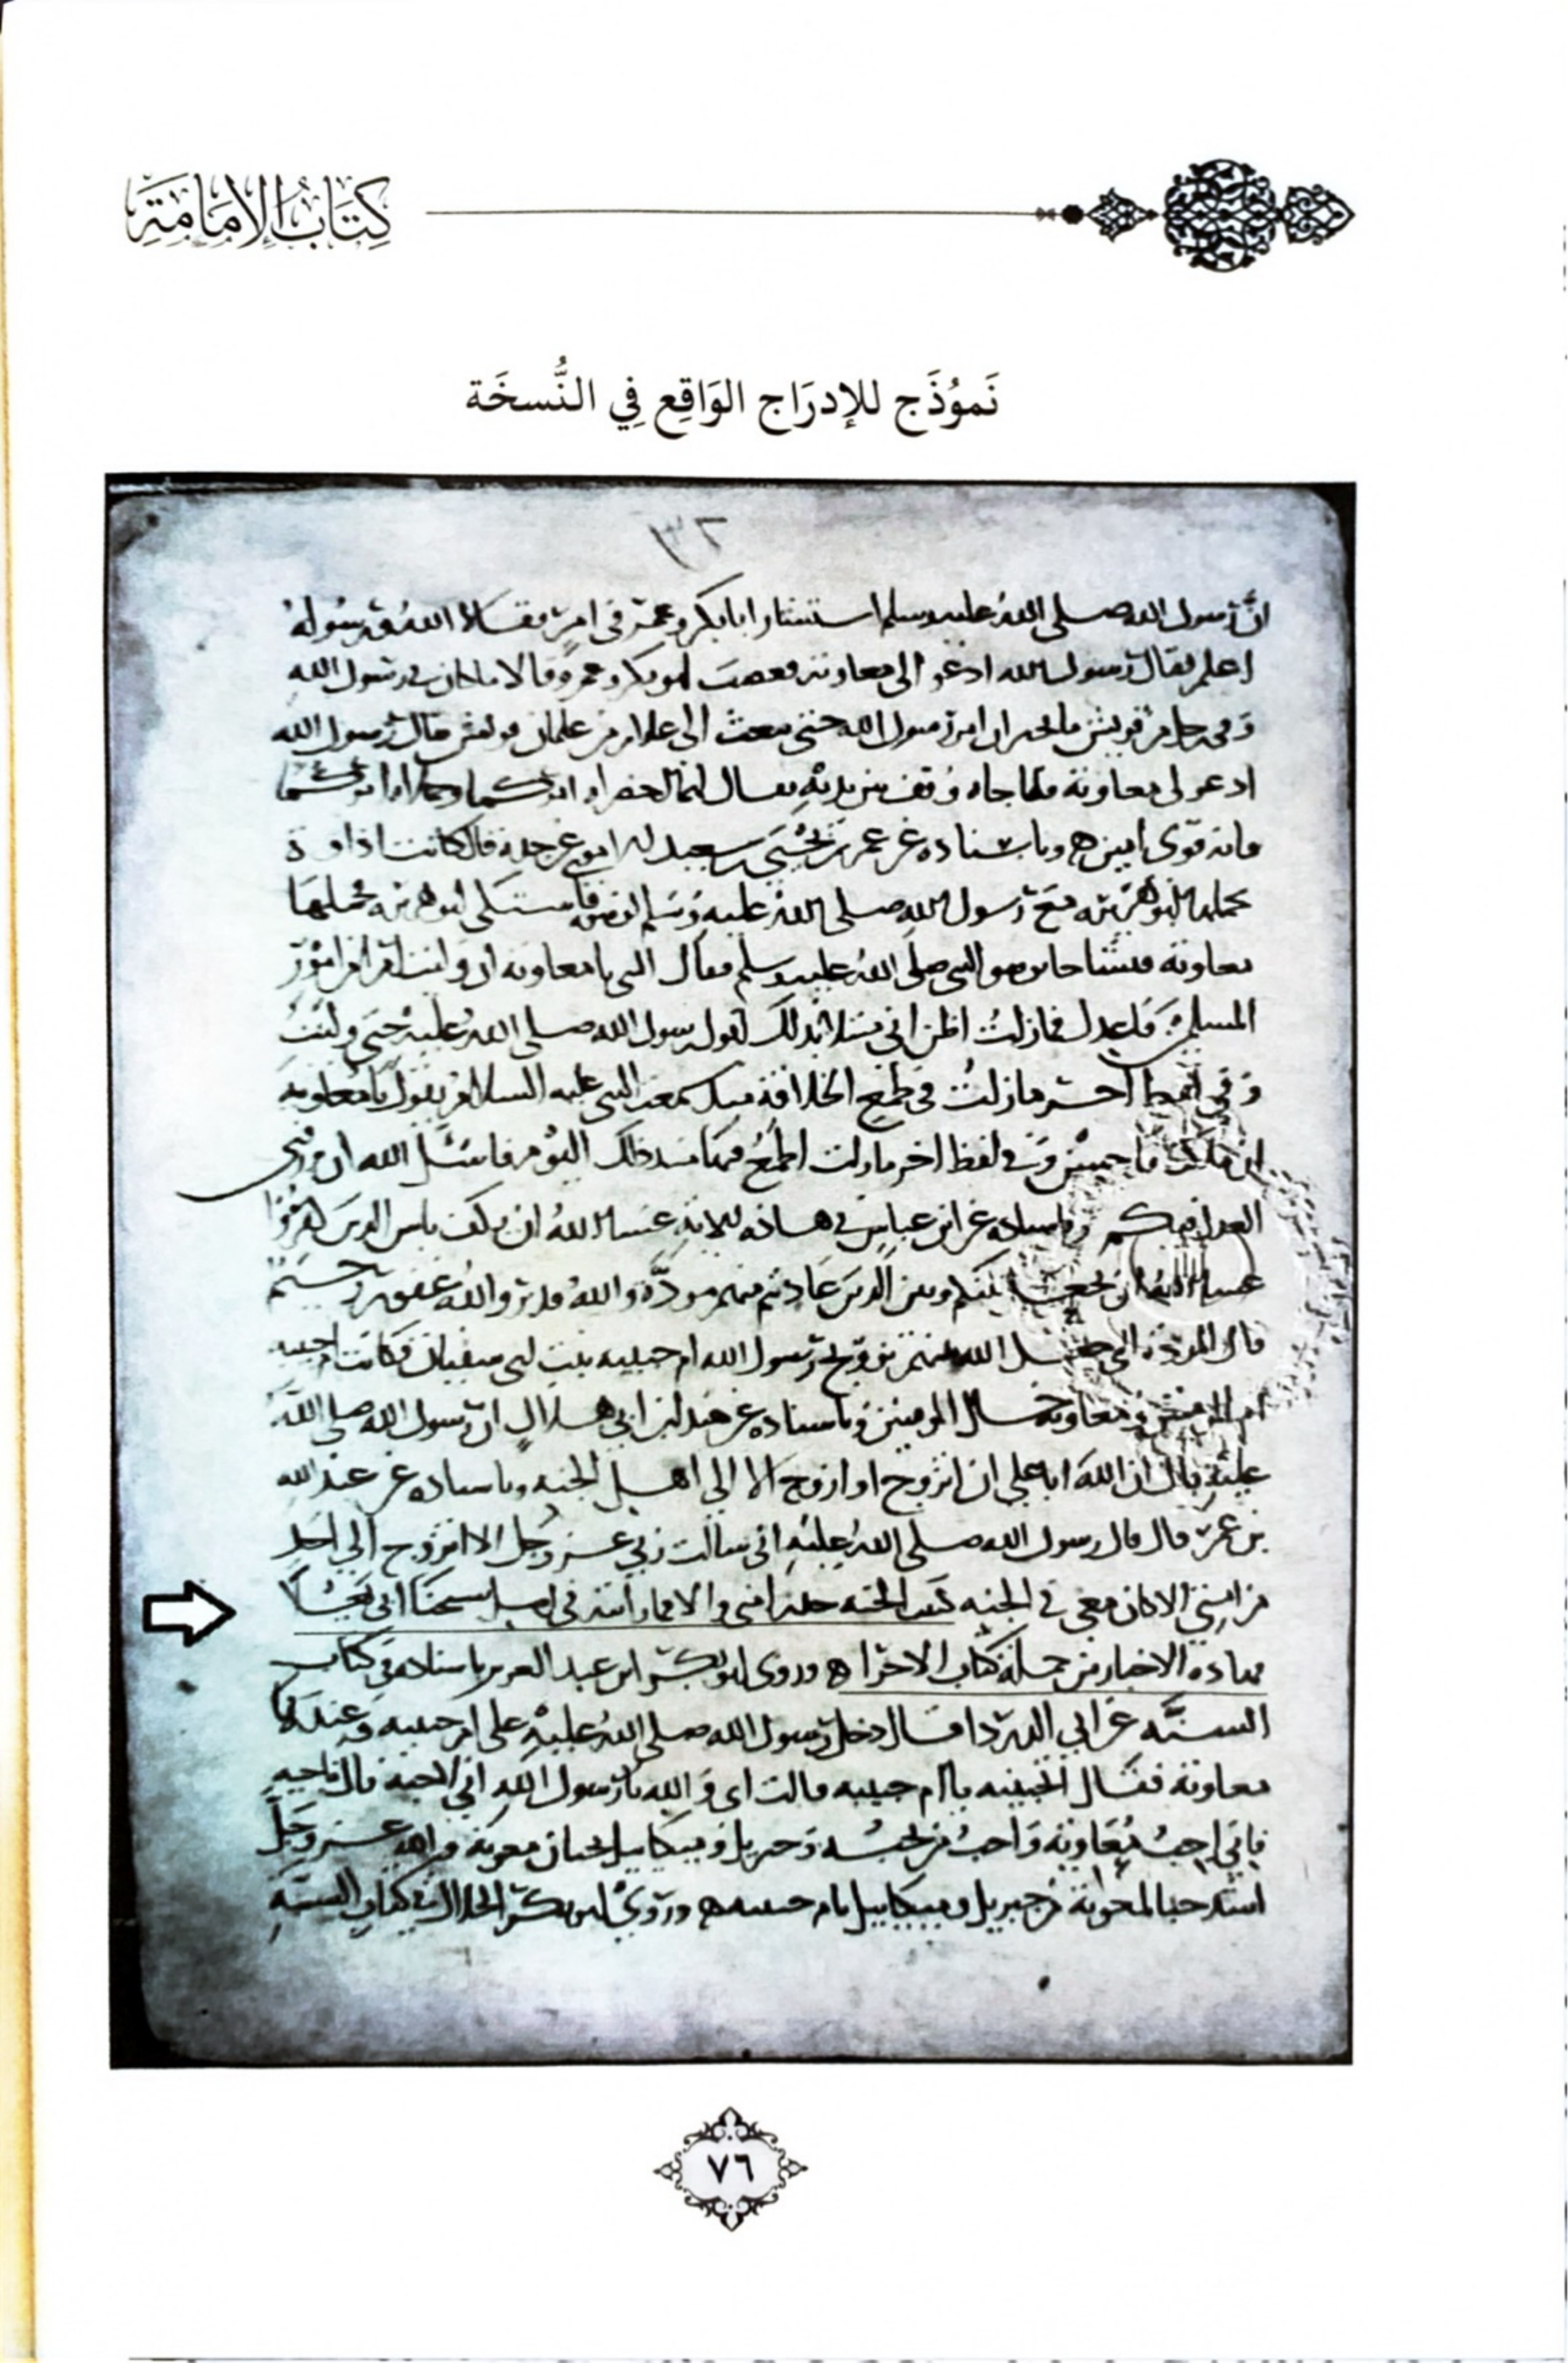 كِتَابُ الإِمَامَةِ
نَموُذَج للإدرَاج الوَاقِع فِي النُّسخَة
٣٢
انّ رسول الله صلى الله عليه وسلم استشار ابابكر وعمر في امر فقالا الله ورسوله
اعلم فقال رسول الله ادعوا الى معاوية فغضب ابو بكر وعمر وقالا ما كان في رسول الله
رسول الله حتى بعث الى غلام من غلمان قريش فقال رسول الله
ادعوا لى معاوية فلما جاه وقف بين يديه فقال
فانه قوى امين وباسناده عن عمرو بن يحيى بن سعيد عن جده قال كانت اداوة
يحملها ابو هريره مع رسول الله صلى الله عليه وسلم فاشتكى ابو هريره فحملها
معاوية النبي صلى الله عليه وسلم فقال النبي يا معاويه ان وليت امرا من امور
المسلمين فاعدل فما زلت اظن اني مبتلا بذلك لقول رسول الله صلى الله عليه حتى وليت
وفي لفظ اخر ما زلت في طمع الخلافة منذ سمعت النبي عليه السلام يقول يا معاوية
ان ملكت فاحسن وفي لفظ اخر ما زلت اطمع فيها منذ ذلك اليوم فاسئل الله ان
وباسناده عن ابن عباس في هاذه الاية عسا الله ان يكف باس الذين كفروا
عسا الله ان يجعل بينكم وبين الذين عاديتم منهم مودّة والله قدير والله غفور رحيم
قال المودة التي جعل الله بينهم تزويج رسول الله ام حبيبه بنت ابي سفيان فكانت ام حبيبه
ام المومنين ومعاويه خال المومنين وباسناده عن هند ابن ابي هالة ان رسول الله صلى الله
عليه قال ان الله ابا علي ان اتزوج او ازوج الا الى اهل الجنه وباسناده عن عبد الله
بن عمر قال قال رسول الله صلى الله عليه اني سالت ربي عز وجل الا اتزوج الى احد
من امتي الا كان معي في الجنه
هاذه الاخبار من جملة كتاب وروى ابو بكر ابن عبد العزيز باسناده في كتاب
السنّه عن ابي الدردا قال دخل رسول الله صلى الله عليه على ام حبيبه وعندها
معاوية فقال اتحبينه يا ام حبيبه قالت اى والله يا رسول الله اني لاحبه قال فاحبيه
فاني احب معاوية واحب من يحبه وجبريل وميكاييل يحبان معوية والله عز وجل
اشد حبا لمعوية من جبريل وميكاييل يا ام حبيبه وروى ابو بكر الخلال في كتاب السنة
٧٦